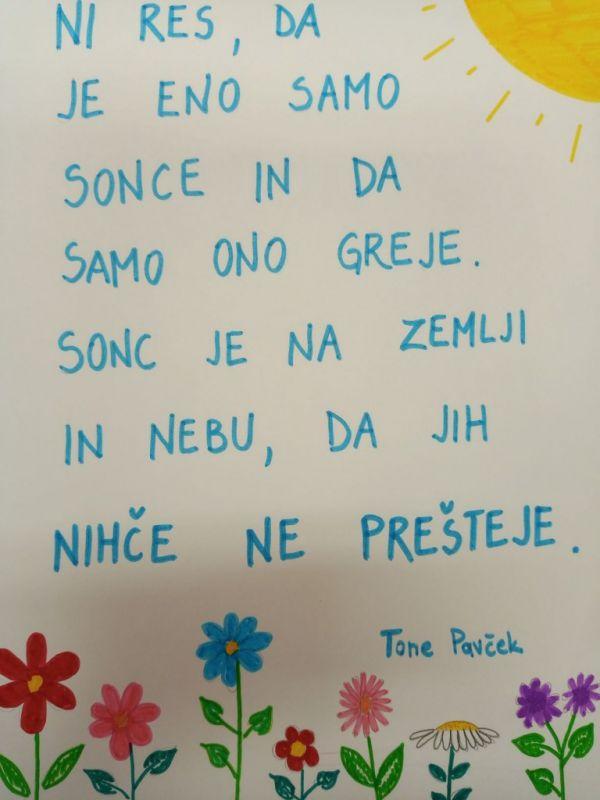 NI RES, DA
JE ENO SAMO
SONCE IN DA
SAMO ONO GREJE.
SONC JE NA ZEMLJI
IN NEBU, DA JIH
NIHČE NE PREŠTEJE.
Tone Pavček